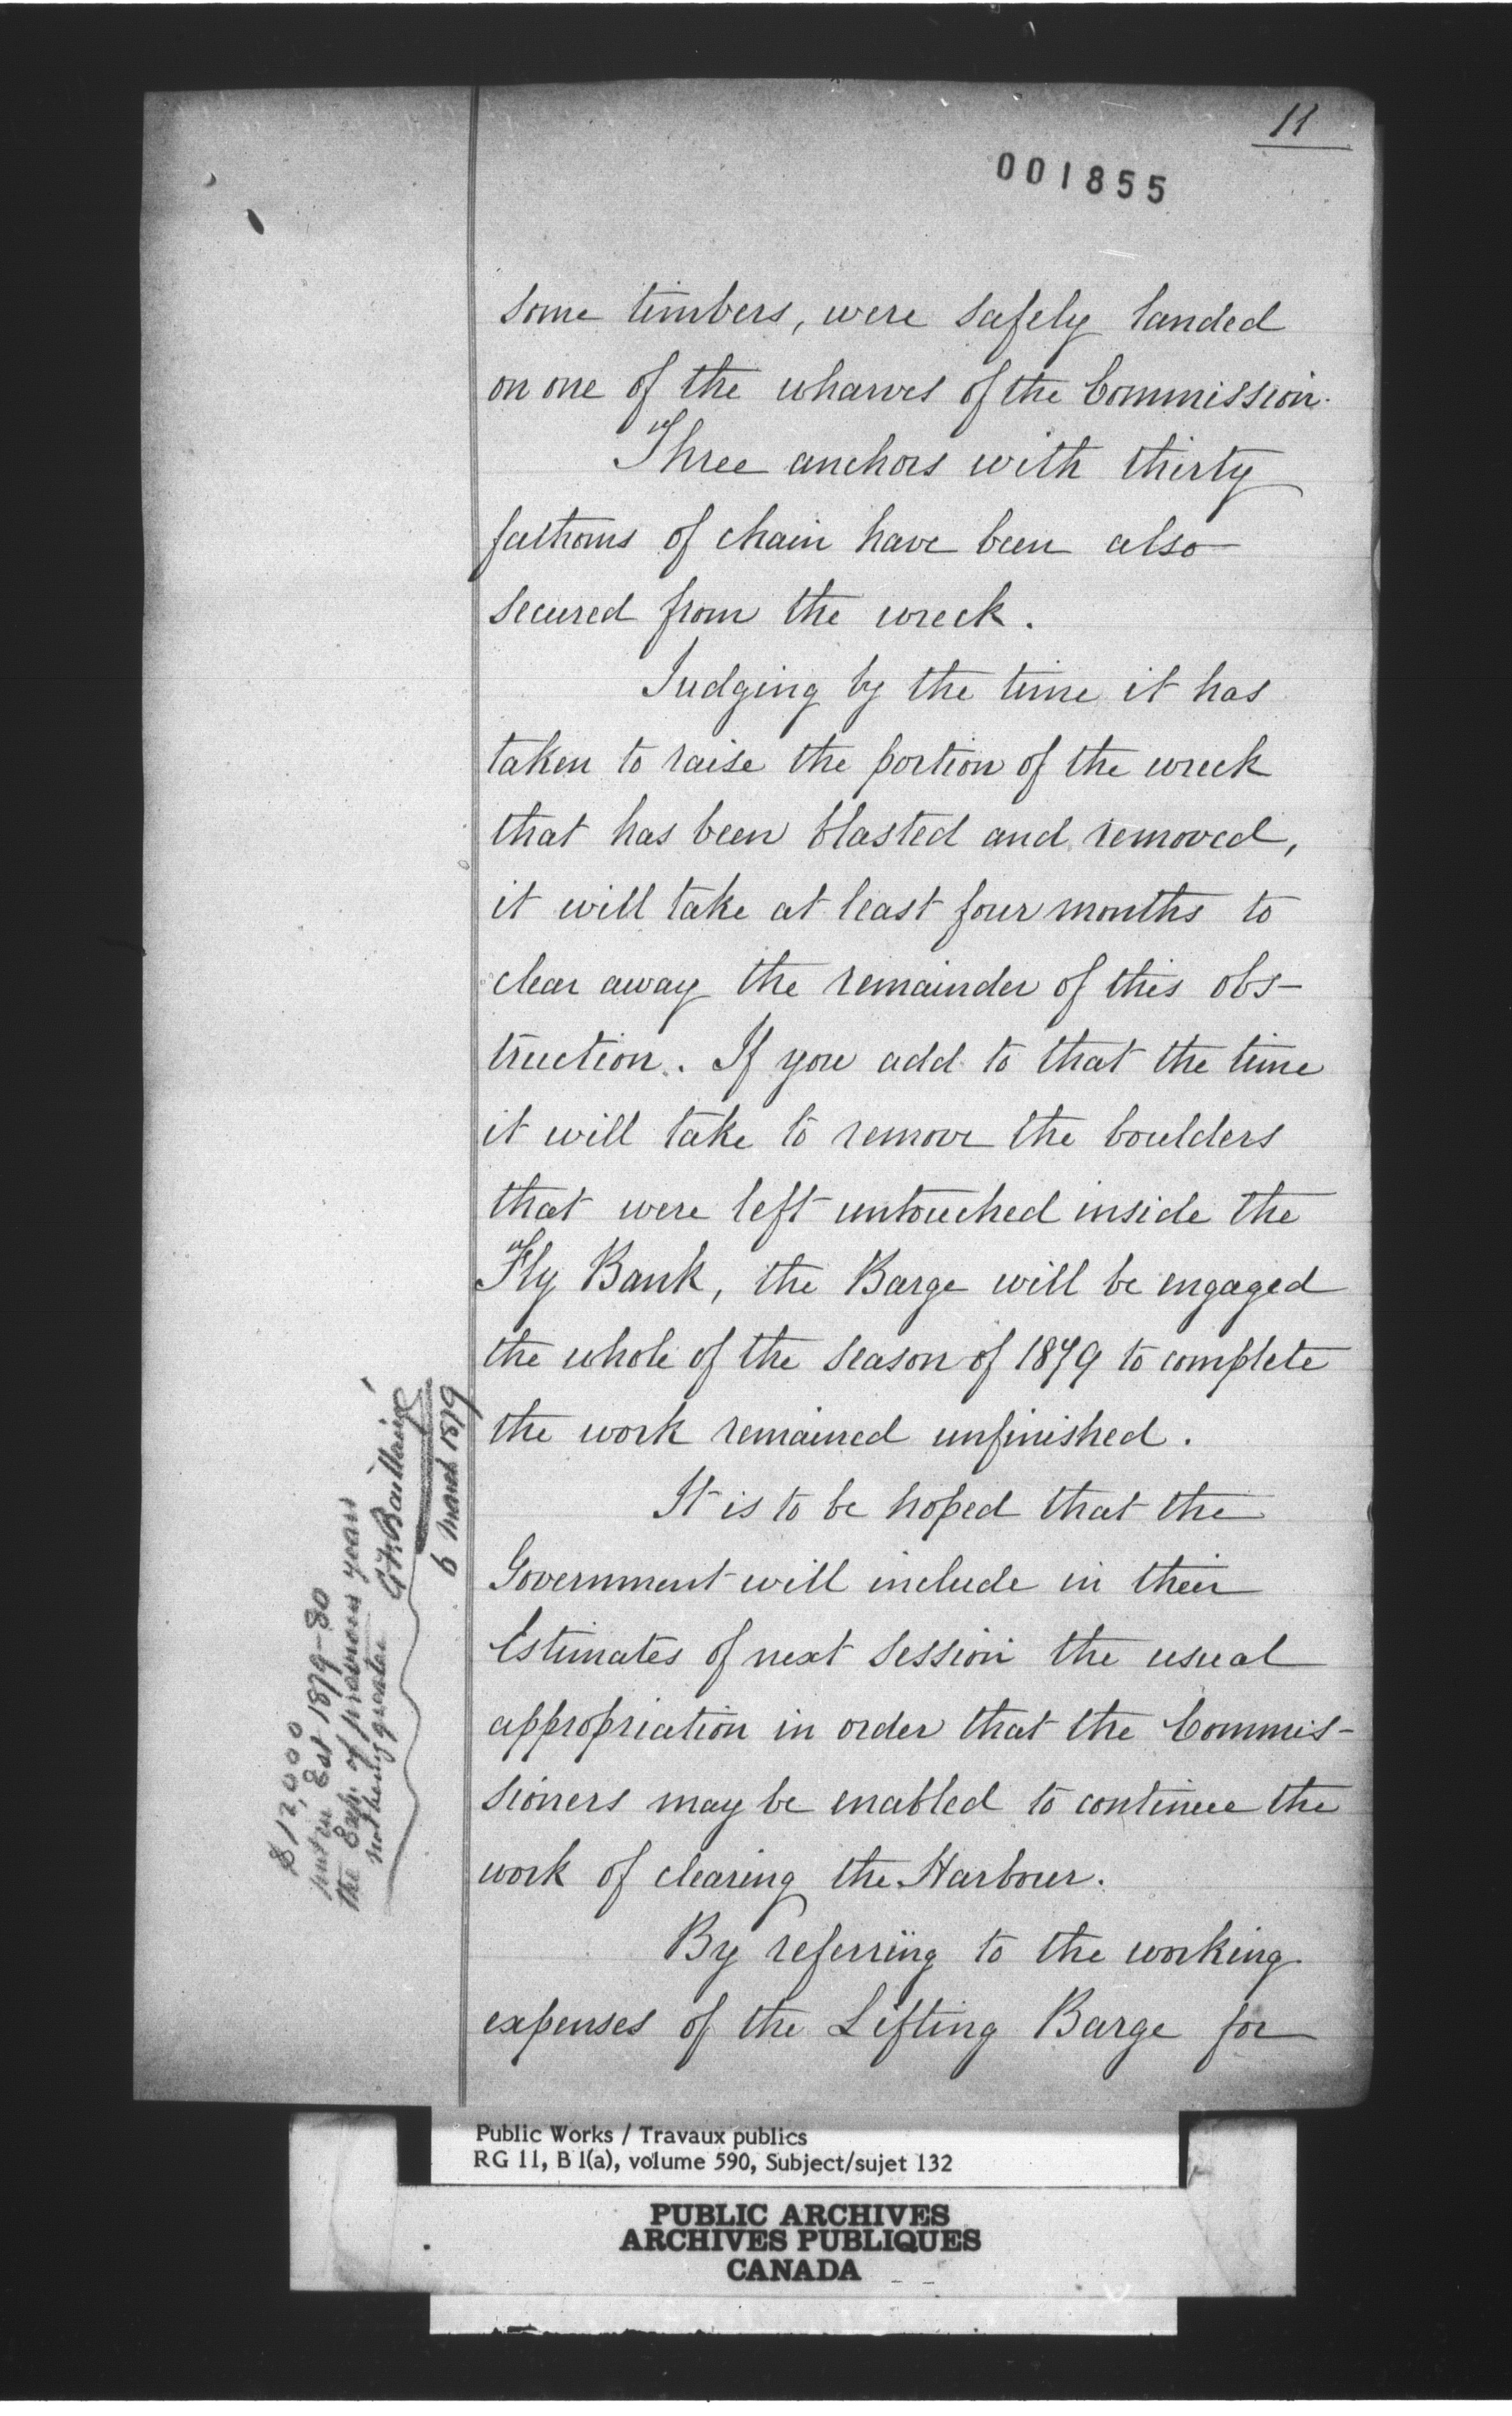 11
001855
some timbers, were safely landed
on one of the wharves of the Commission.
Three anchors with thirty
fathoms of chain have been also
secured from the wreck.
Judging by the time it has
taken to raise the portion of the wreck
that has been blasted and removed,
it will take at least four months to
clear away the remainder of this obs-
truction. If you add to that the time
it will take to remove the boulders
that were left untouched inside the
Fly Bank, the Barge will be engaged
the whole of the season of 1879 to complete
the work remained unfinished.
It is to be hoped that the
Government will include in their
Estimates of next session the usual
appropriation in order that the Commis-
sioners may be enabled to continue the
work of clearing the Harbour.
By referring to the working
expenses of the Lifting Barge for
$12,000
put in Est 1879-80
the Exp. of previous years
not being greater
G F Baillairgé
6 March 1879
Public Works / Travaux publics
RG 11, B 1(a), volume 590, Subject/sujet 132
PUBLIC ARCHIVES
ARCHIVES PUBLIQUES
CANADA